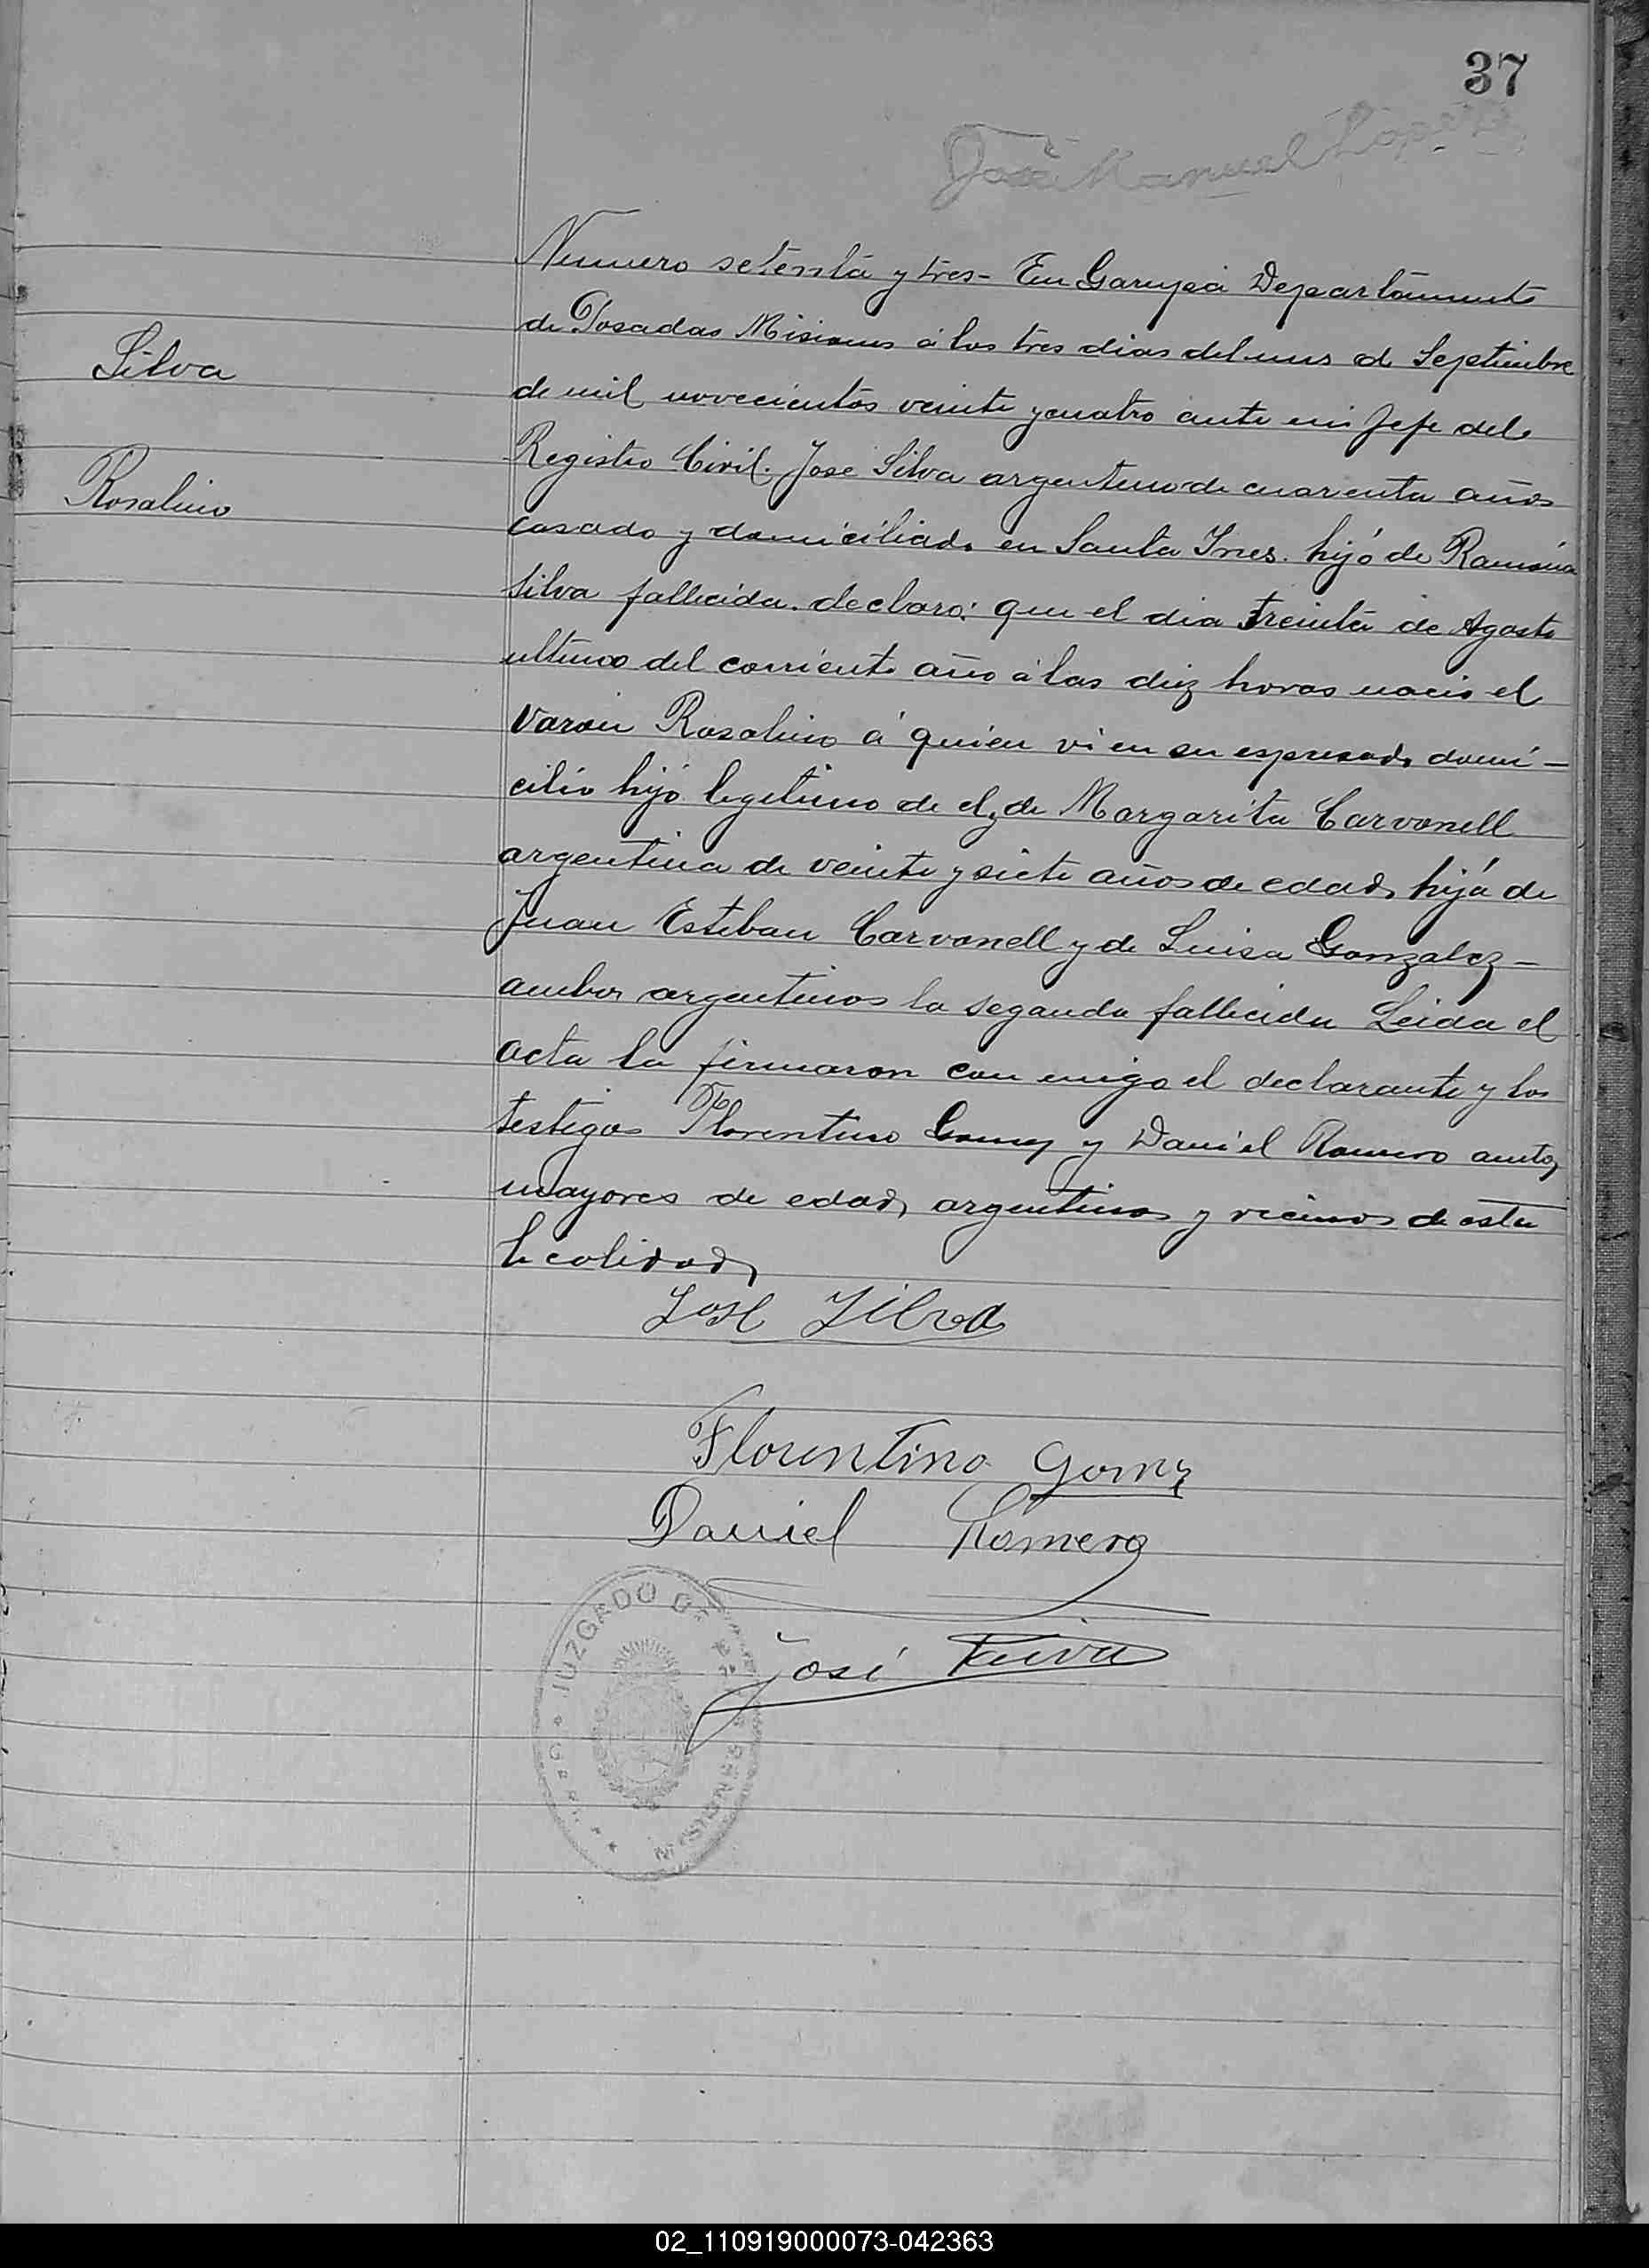 37
José Manuel Lopez
Numero setenta y tres- En Garupá Departamento
de Posadas Misiones á los tres dias del mes de Septiembre
Silva
de mil novecientos veinte y cuatro ante mi Jefe del
Registro Civil. José Silva argentino de cuarenta años
Rosalino
casado y domiciliado en Santa Ines. hijo de Ramona
Silva fallecida. declaro: que el dia treinta de Agosto
ultimo del corriente año á las diez horas nacio el
varon Rosalino á quien vi en su espresado domi-
cilio hijo legitimo de el y de Margarita Carvonell
argentina de veinte y siete años de edad, hija de
Juan Esteban Carvonell y de Luisa Gonzalez-
ambos argentinos la segunda fallecida Leida el
acta la firmaron con migo el declarante y los
testigos Florentino Gomez y Daniel Romero
mayores de edad, argentinos y vecinos de esta
localidad,
José Silva
Florentino Gomez
Daniel Romero
José
JUZGADO DE PAZ
MISIONES
02_110919000073-042363